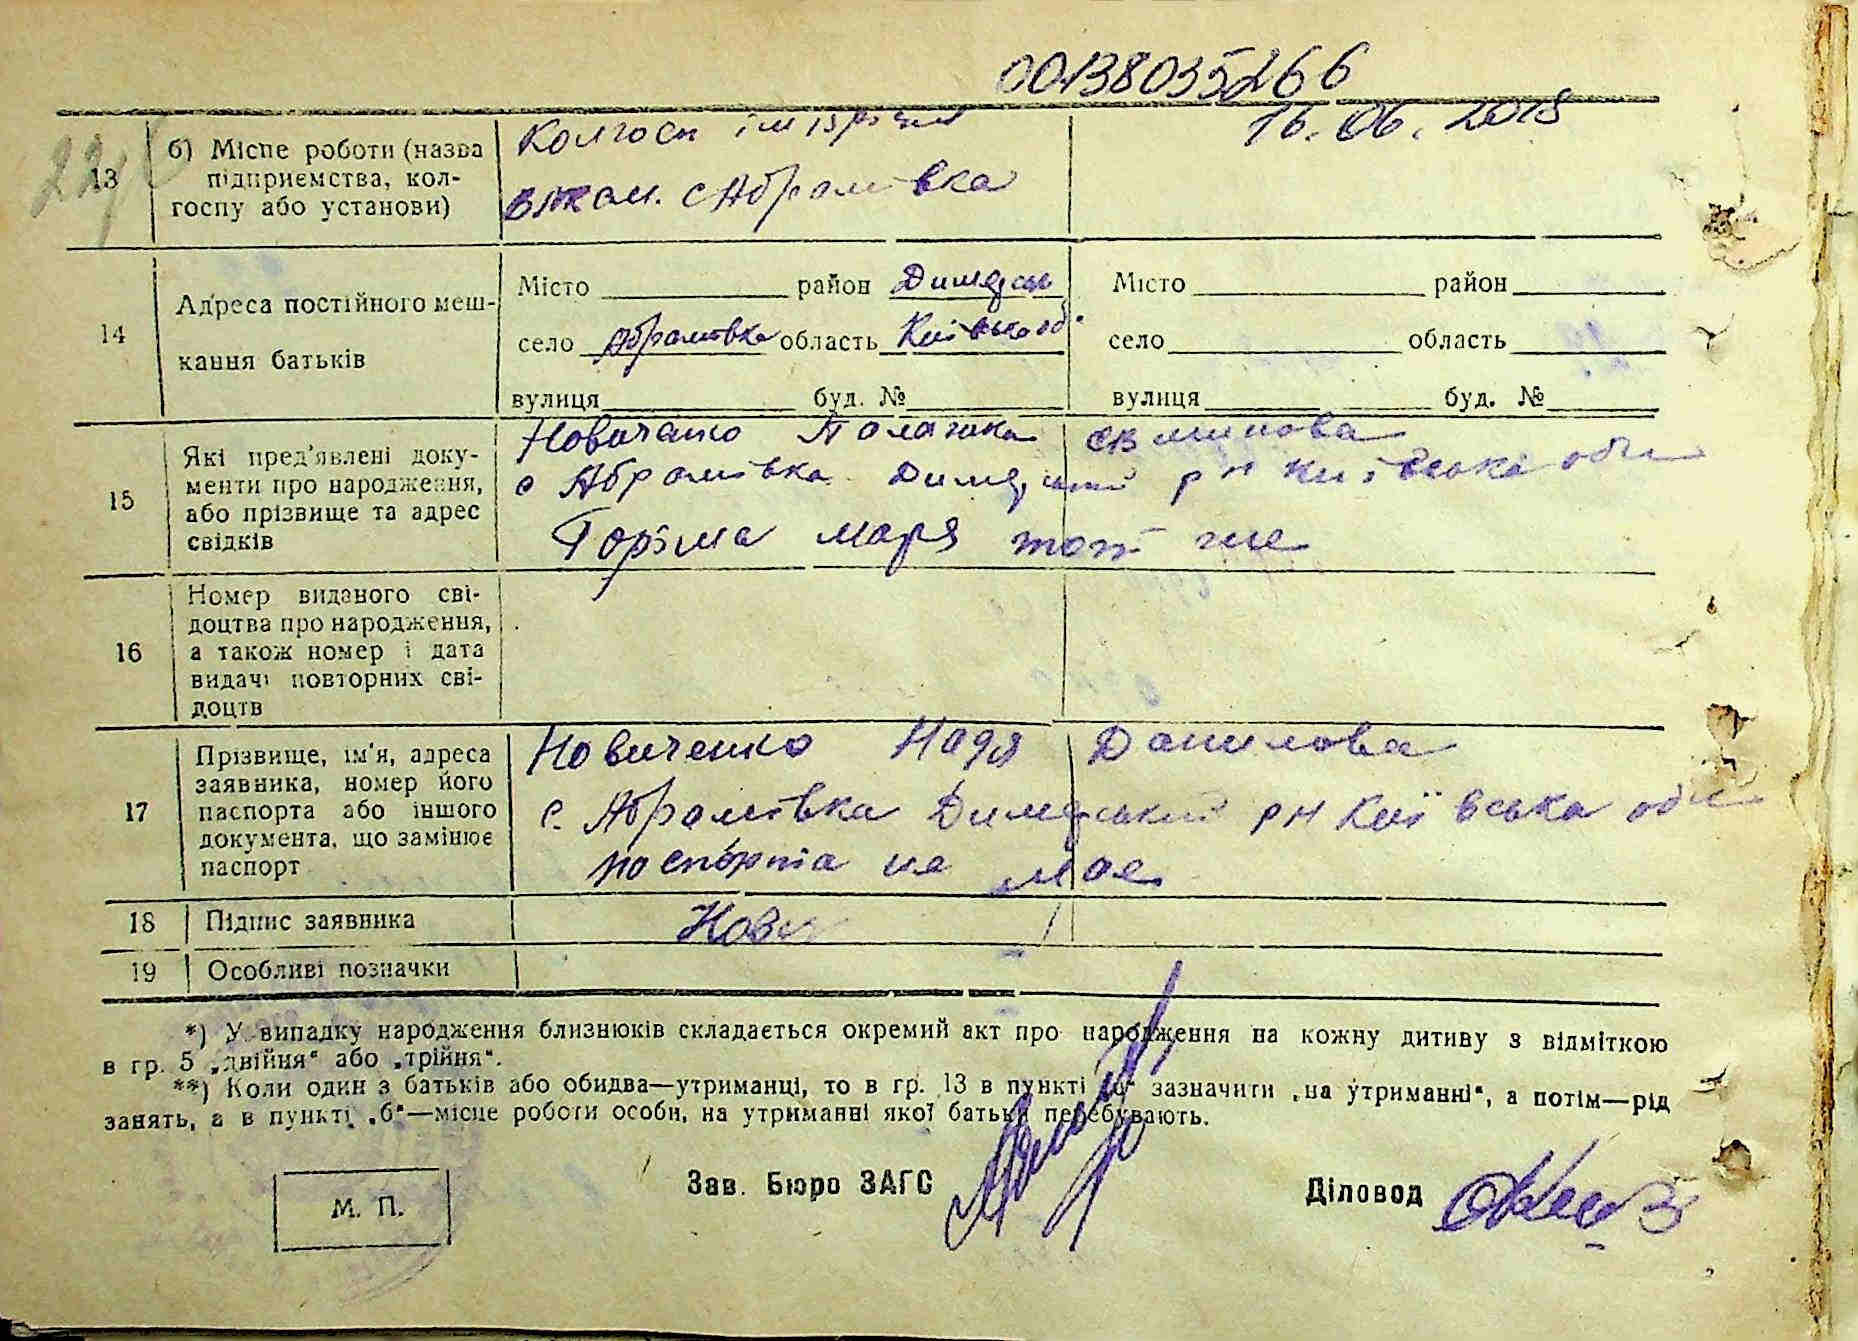 00138035266
16.06.2018
13
б) Місце роботи (назва
підприємства, кол-
госпу або установи)
Колгосп ім
с Абрамівка
14
Адреса постійного меш-
кання батьків
Місто район Димерськ
село Абрамівка область Київська об.
вулиця буд. №
Місто район
село область
вулиця буд. №
15
Які пред'явлені доку-
менти про народження,
або прізвище та адрес
свідків
Новиченко Палажка
с Абрамівка Димерський р н Київська обл
Маря той же
16
Номер виданого сві-
доцтва про народження,
а також номер і дата
видачі повторних сві-
доцтв
17
Прізвище, ім'я, адреса
заявника, номер його
паспорта або іншого
документа, що замінює
паспорт
Новиченко Надя Данилова
с. Абрамівка Димерський р н Київська обл
паспорта не має
18
Підпис заявника
Нови
19
Особливі позначки
*) У випадку народження близнюків складається окремий акт про народження на кожну дитину з відміткою
в гр. 5 „двійня“ або „трійня“.
**) Коли один з батьків або обидва—утриманці, то в гр. 13 в пункті „а“ зазначити „на утриманні“, а потім—рід
занять, а в пункті „б“—місце роботи особи, на утриманні якої батьки перебувають.
М. П.
Зав. Бюро ЗАГС
Діловод